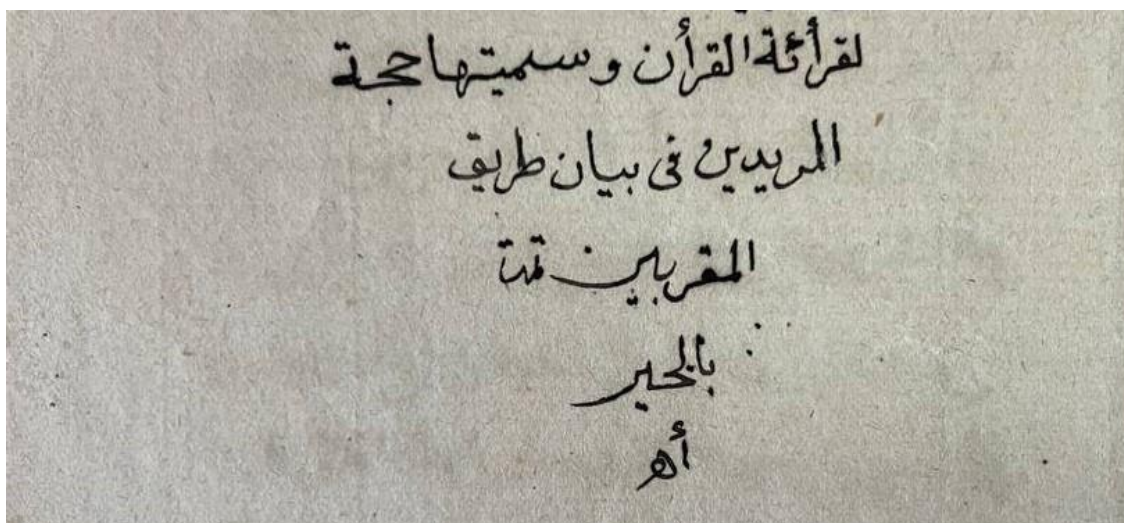 لقرأئة القرأن وسميتها حجة
المريدين فى بيان طريق
المقربين تمت
بالخير
أه